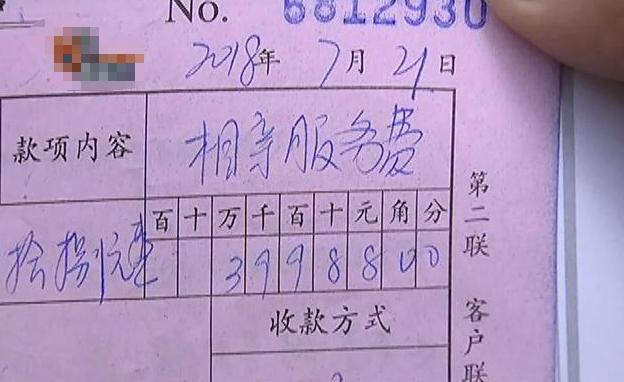 No. 6812930
2018年7月21日
款项内容 相亲服务费
百十万千百十元角分
拾捌元整 3998800
收款方式
第二联 客户联